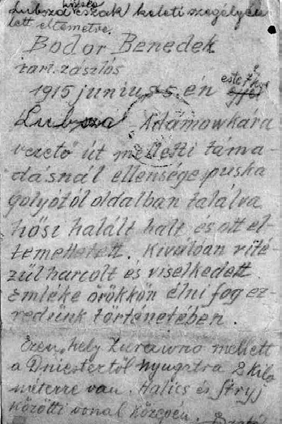 Lubsza község északkeleti szegélyén
lett eltemetve.
Bodor Benedek
tart. zászlós
1915 június 5. én este 7
Lubsza Adamowkara
vezető út melletti tama-
dásnál ellenséges puska
golyótól oldalban találva
hősi halált halt és ott el-
temettetett. Kiválóan vité
zül harcolt és viselkedett
emléke örökkön élni fog ez-
redünk történetében.
Ezen hely Zurawno mellett
a Dniestertől nyugatra 2 kilo
méterre van. Halics és Stryj
közötti vonal közepén.